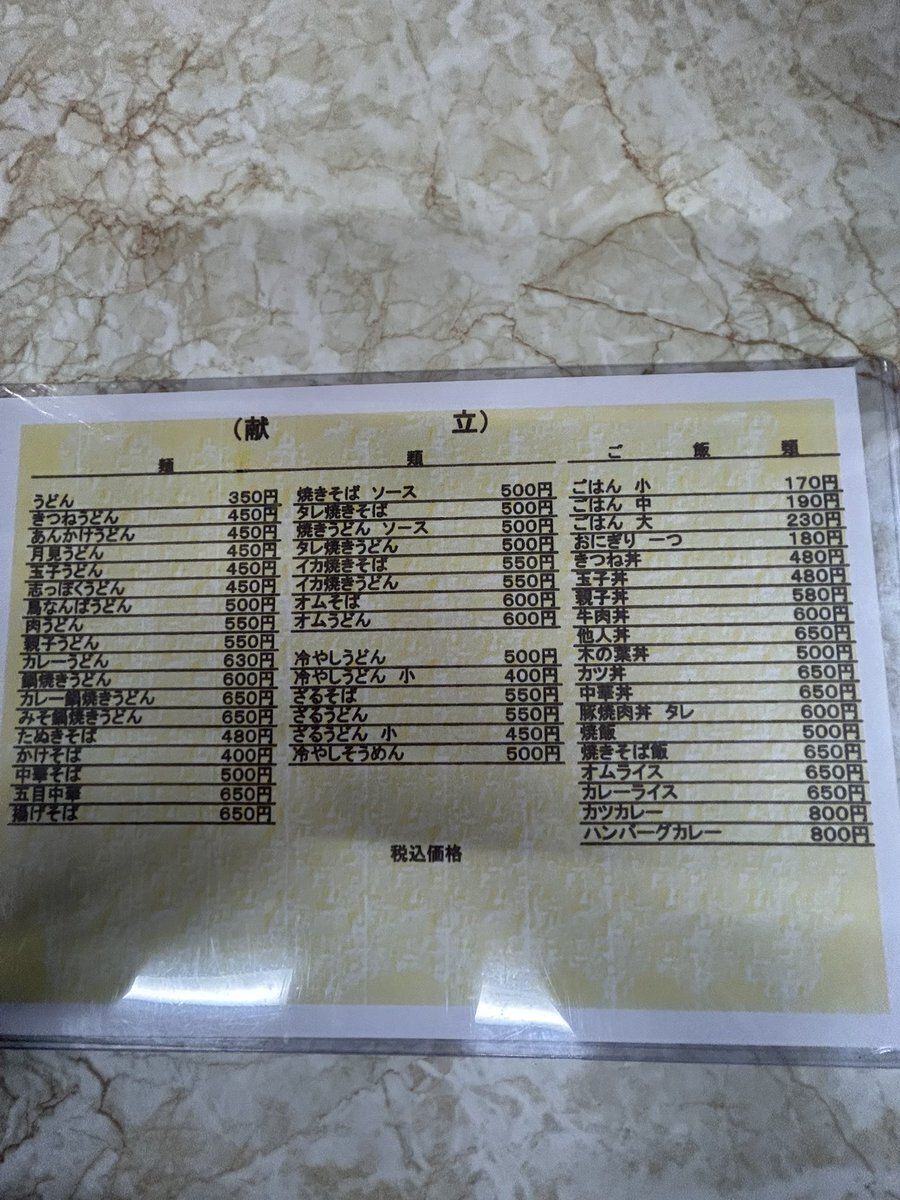 (献 立)
麺 類
うどん 350円
きつねうどん 450円
あんかけうどん 450円
月見うどん 450円
玉子うどん 450円
志っぽくうどん 450円
鳥なんばうどん 500円
肉うどん 550円
親子うどん 550円
カレーうどん 630円
鍋焼きうどん 600円
カレー鍋焼きうどん 650円
みそ鍋焼きうどん 650円
たぬきそば 480円
かけそば 400円
中華そば 500円
五目中華 650円
揚げそば 650円
焼きそば ソース 500円
タレ焼きそば 500円
焼きうどん ソース 500円
タレ焼きうどん 500円
イカ焼きそば 550円
イカ焼きうどん 550円
オムそば 600円
オムうどん 600円
冷やしうどん 500円
冷やしうどん 小 400円
ざるそば 550円
ざるうどん 550円
ざるうどん 小 450円
冷やしそうめん 500円
ご 飯 類
ごはん 小 170円
ごはん 中 190円
ごはん 大 230円
おにぎり 一つ 180円
きつね丼 480円
玉子丼 480円
親子丼 580円
牛肉丼 600円
他人丼 650円
木の葉丼 500円
カツ丼 650円
中華丼 650円
豚焼肉丼 タレ 600円
焼飯 500円
焼きそば飯 650円
オムライス 650円
カレーライス 650円
カツカレー 800円
ハンバーグカレー 800円
税込価格